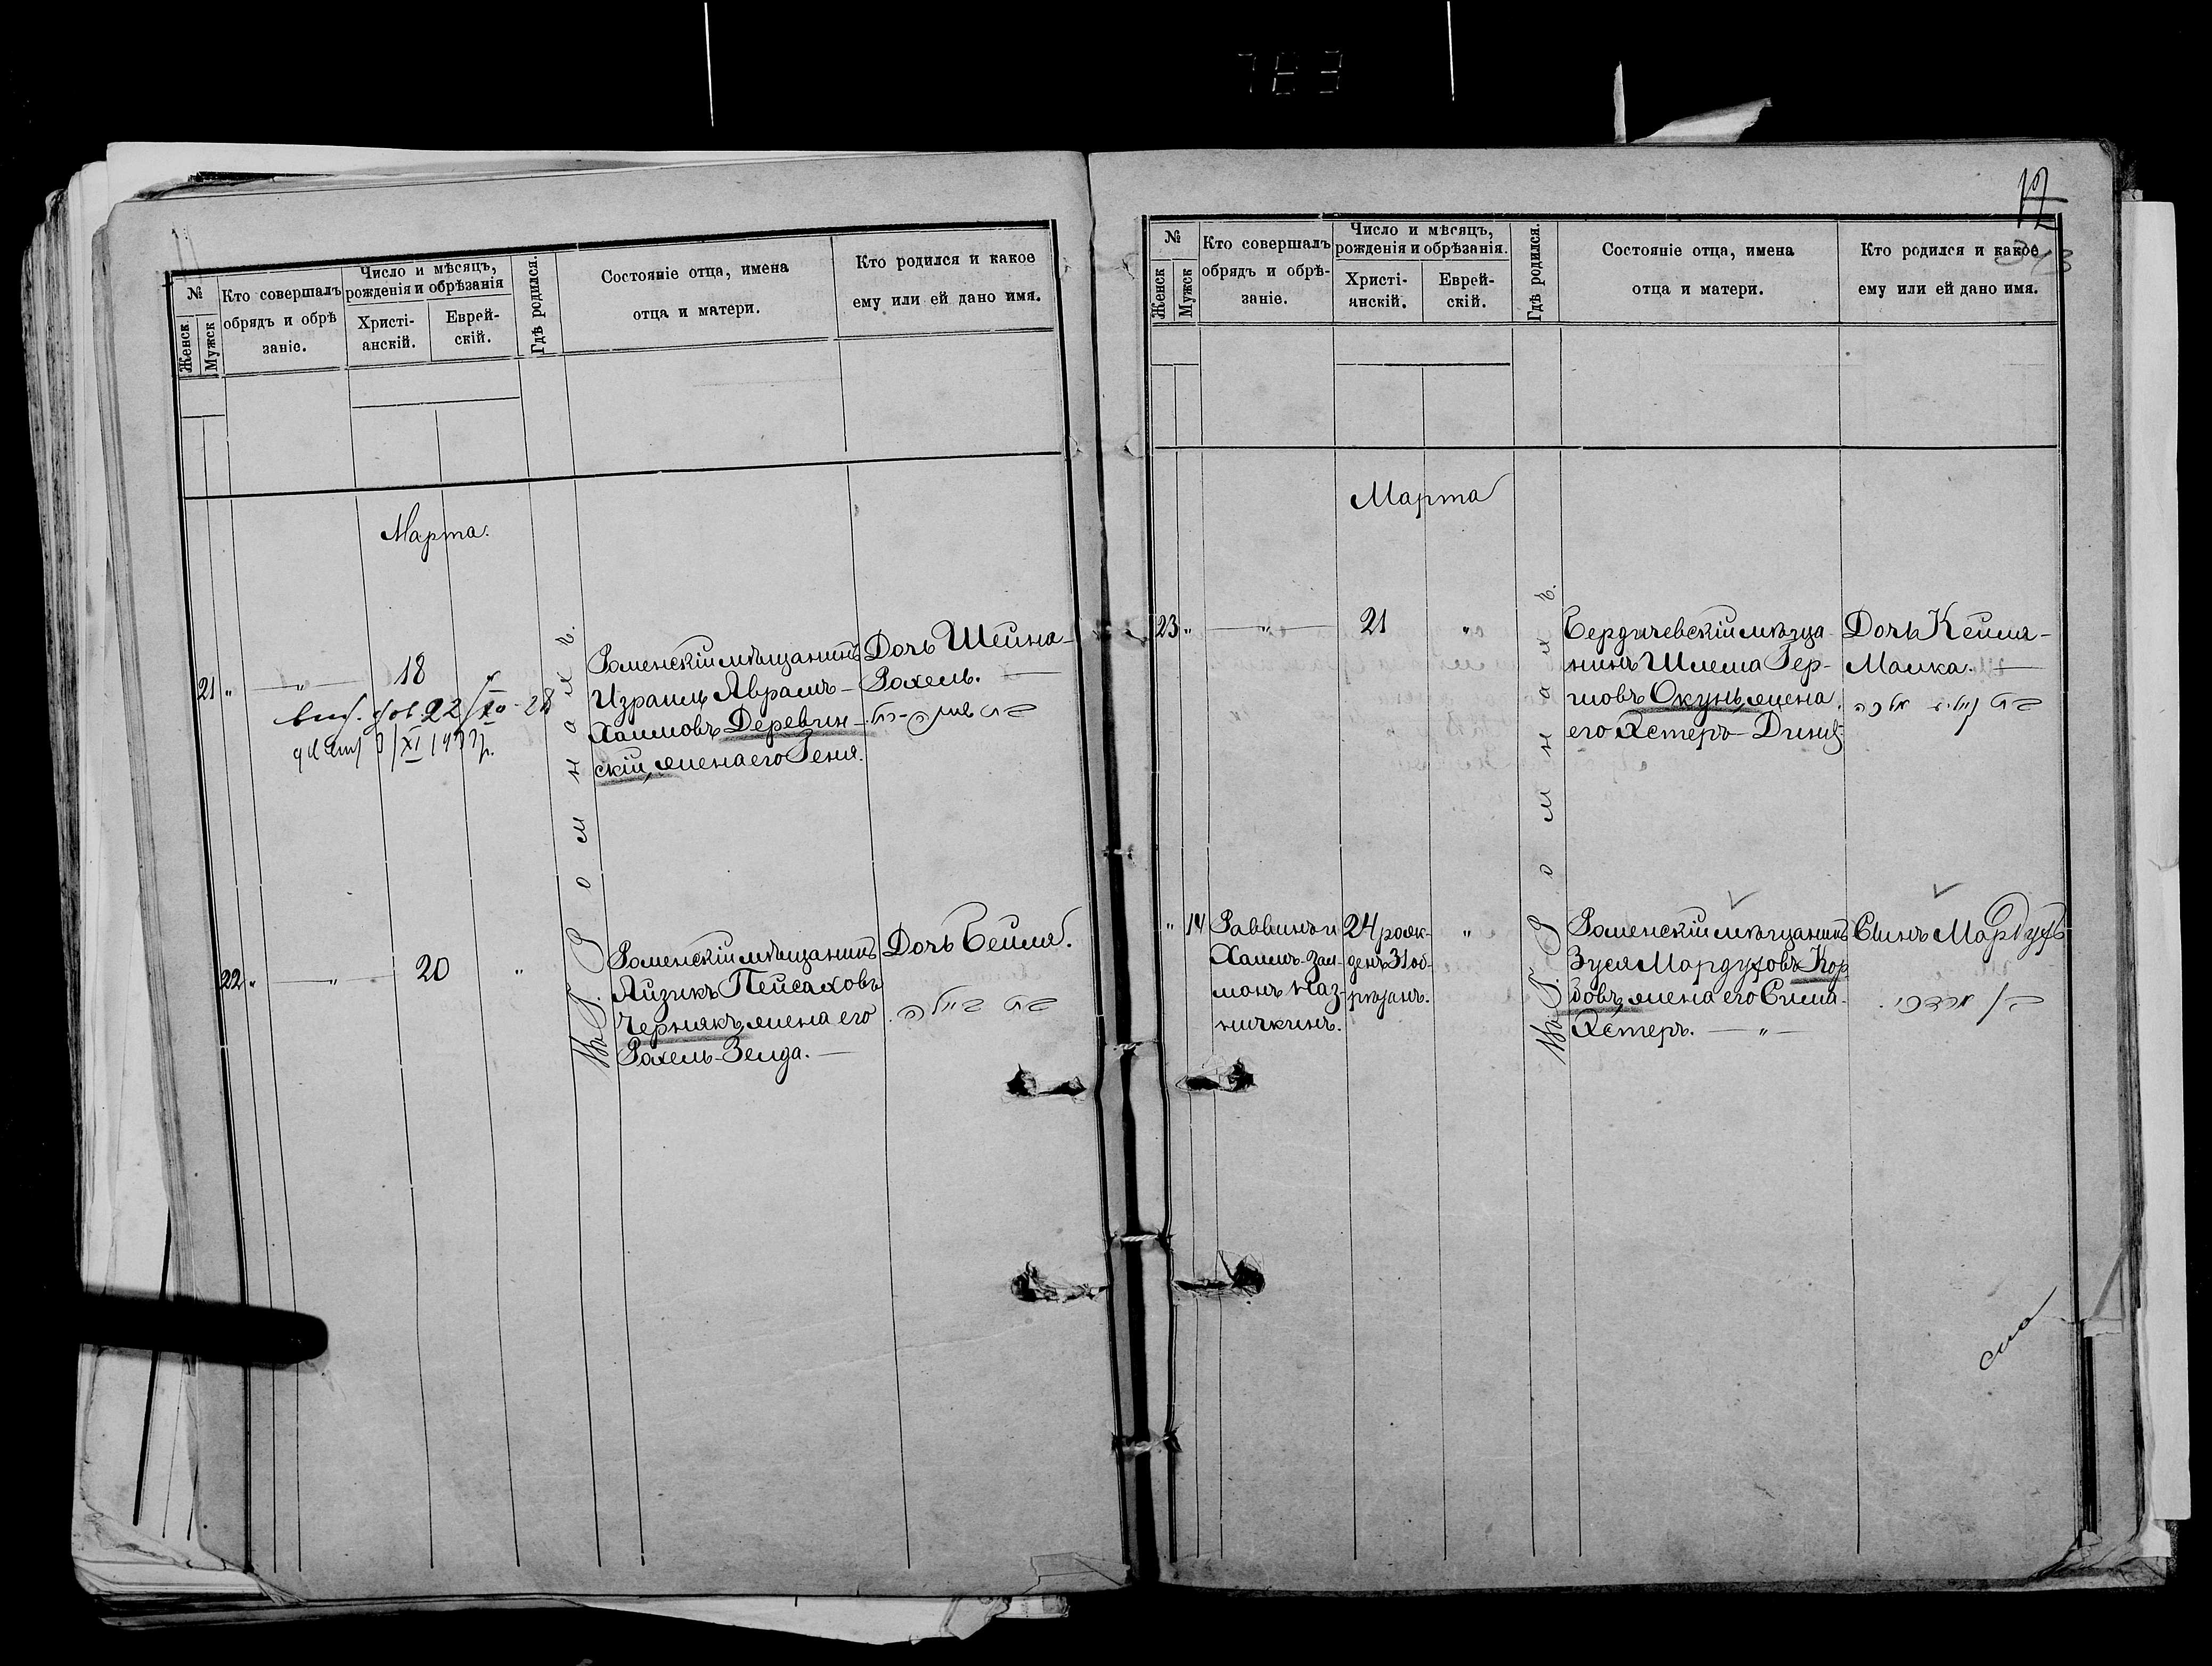 783
№
Женск
Мужск
Кто совершалъ
обрядъ и обрѣ
заніе.
Число и мѣсяцъ,
рожденія и обрѣзанія
Христі-
анскій.
Еврей-
скій.
Гдѣ родился.
Состояніе отца, имена
отца и матери.
Кто родился и какое
ему или ей дано имя.
Марта.
21 " — " — 18
22/XII-28
XI 1933 р.
Въ Г. Ромнахъ.
Роменскій мѣщанинъ
Израиль Аврамъ-
Хаимовъ Деревян-
скій, жена его Геня.
Дочь Шейна-
Рохель. —
22 " — " — 20 "
Роменскій мѣщанинъ
Айзикъ Пейсаховъ
Чернякъ, жена его
Рохель-Зелда. —
Дочь Бейля.
בת ביילה
17
№
Женск
Мужск
Кто совершалъ
обрядъ и обрѣ-
заніе.
Число и мѣсяцъ,
рожденія и обрѣзанія.
Христі-
анскій.
Еврей-
скій.
Гдѣ родился.
Состояніе отца, имена
отца и матери.
Кто родился и какое
ему или ей дано имя.
Марта
23 " — " — 21 "
Въ Г. Ромнахъ.
Бердичевскій мѣща-
нинъ Шлема Гер-
шовъ Окунь, жена
его Эстеръ-
Дочь Кейля-
Малка. —
" 14
Раввинъ и
Хаимъ-Зал-
монъ Каз-
ничкинъ.
24 рож-
денъ 31 об-
рѣзанъ.
"
Роменскій мѣщанинъ
Зуся Мардуховъ Кор
довъ, жена его Сима-
Эстеръ. — " —
Сынъ Мардухъ